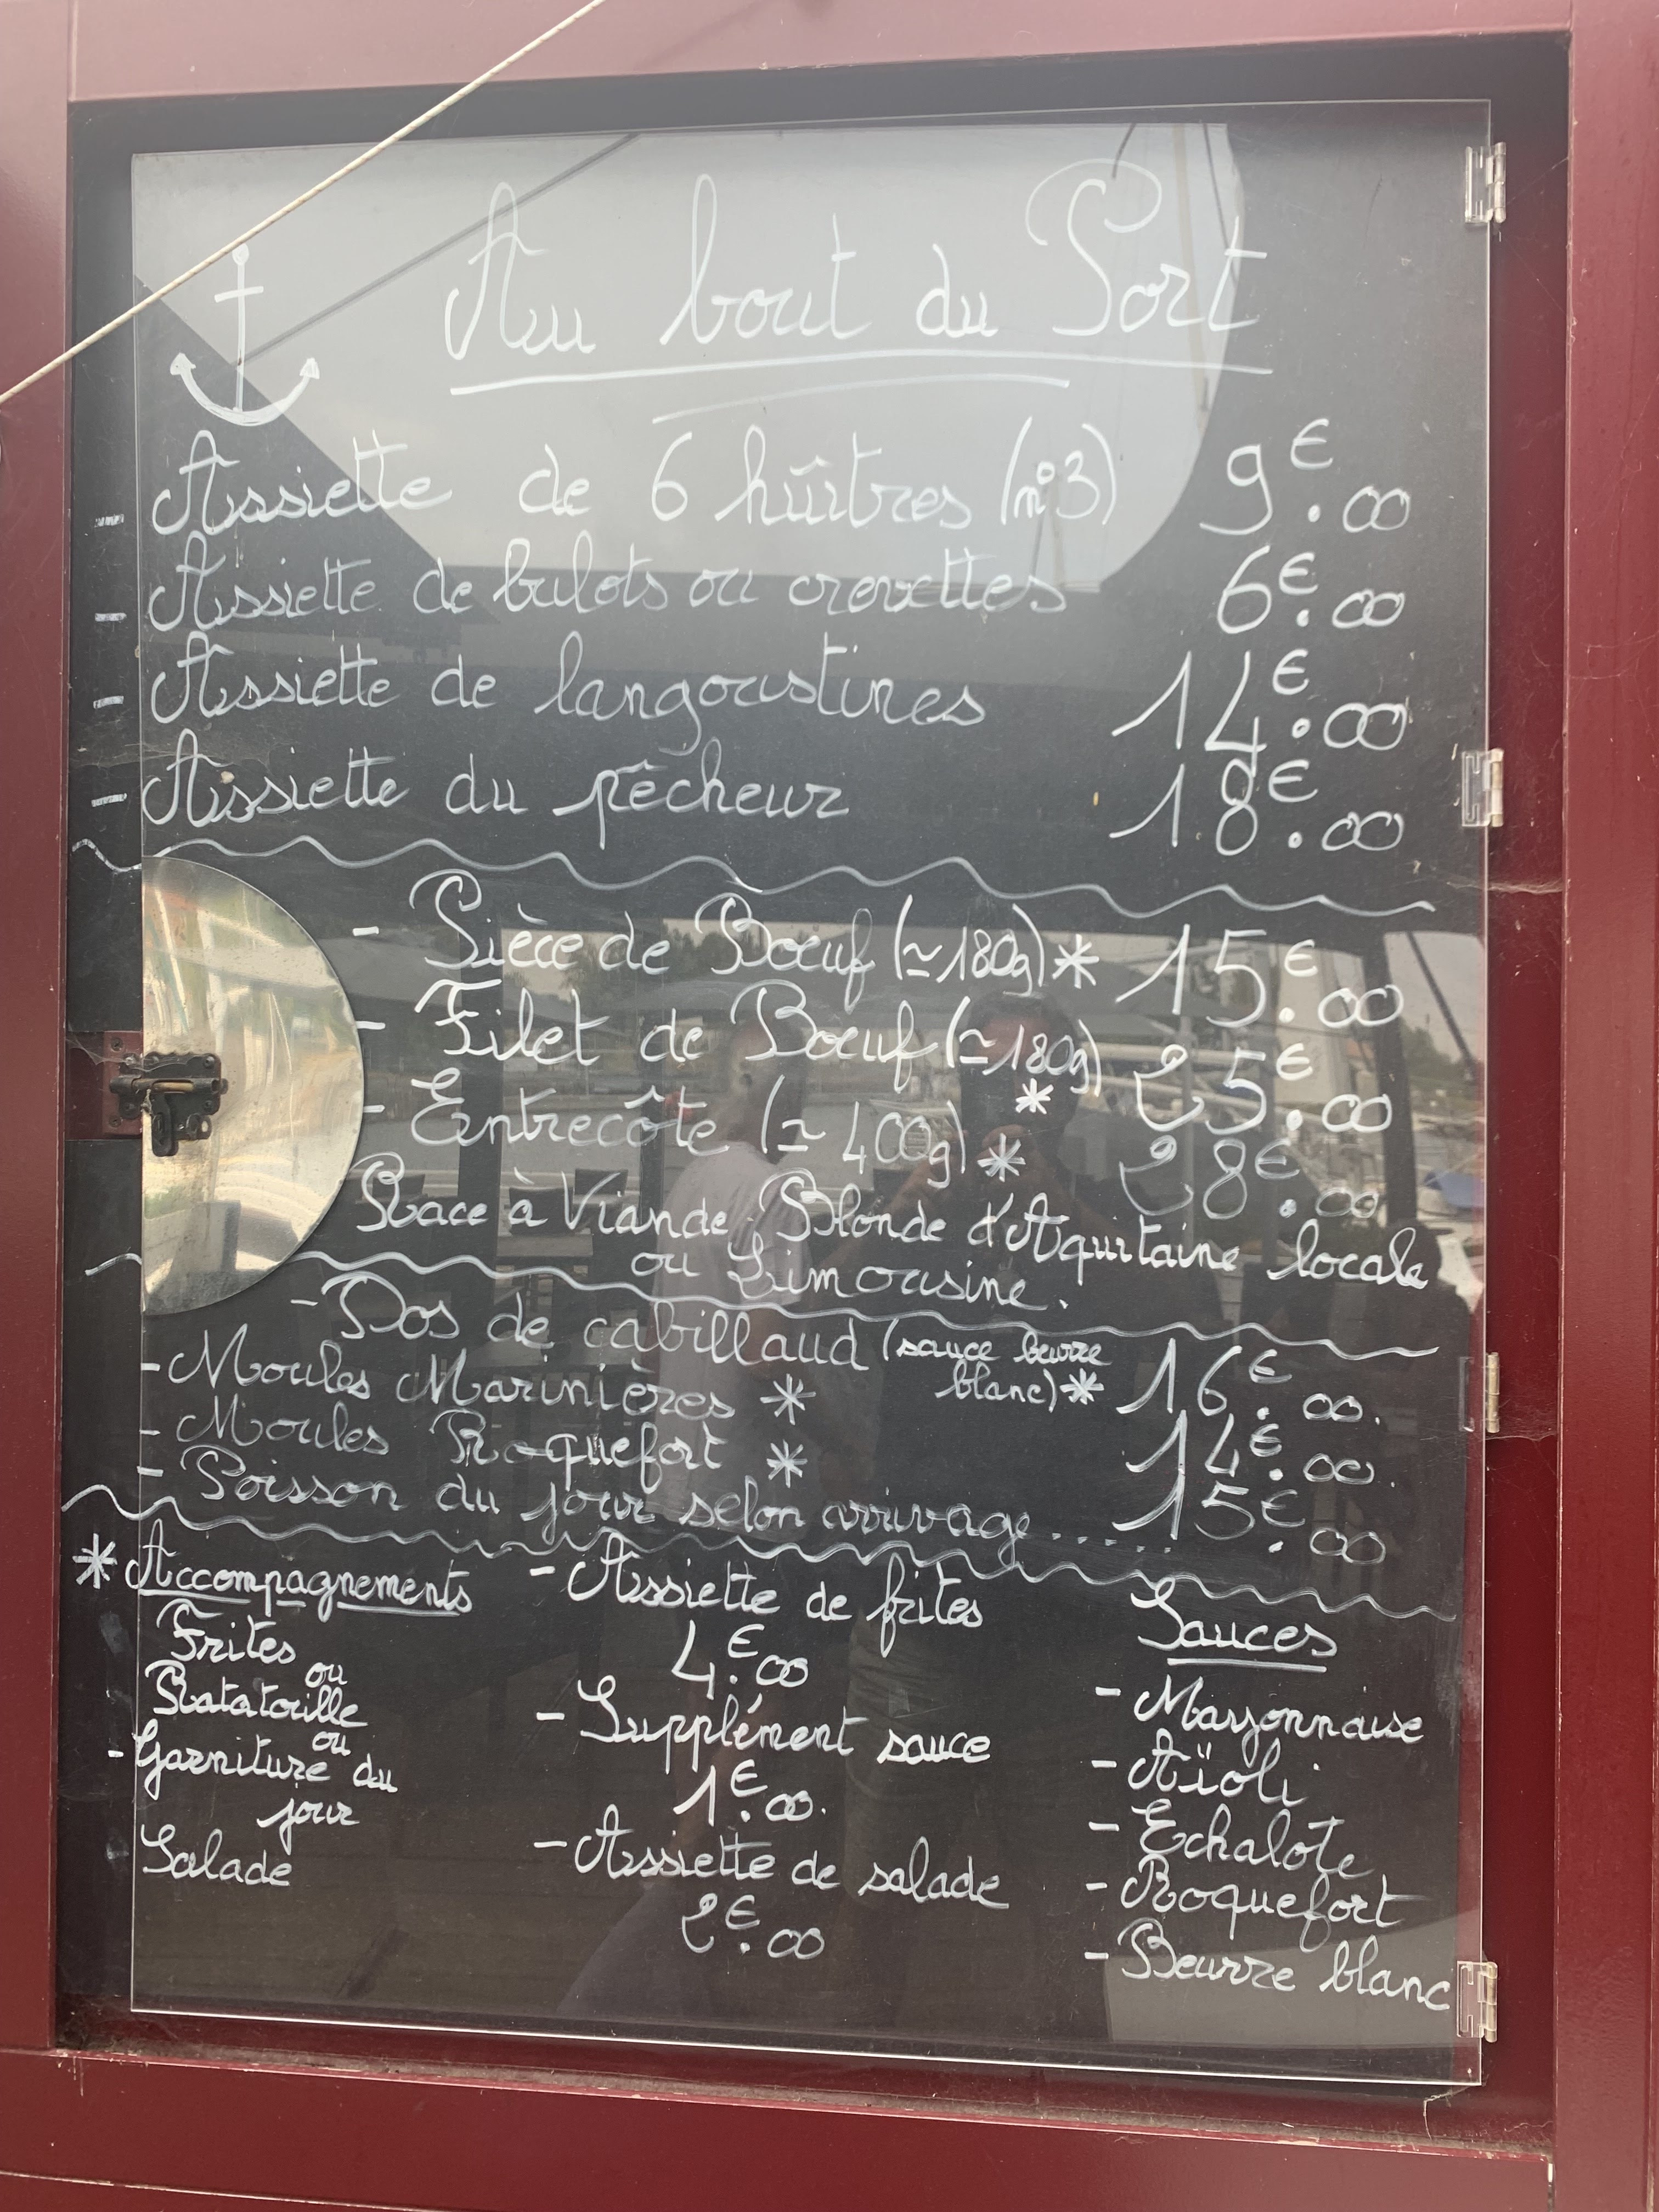 Au bout du Port
- Assiette de 6 huîtres (n°3) 9€.00
- Assiette de bulots ou crevettes 6€.00
- Assiette de langoustines 14€.00
- Assiette du pêcheur 18€.00
- Pièce de Boeuf (≃180g)* 15€.00
- Filet de Boeuf (≃180g)* 25€.00
- Entrecôte (≃400g)* 28€.00
Race à Viande. Blonde d'Aquitaine locale
ou Limousine.
- Dos de cabillaud (sauce beurre
blanc)* 16€.00.
- Moules Marinières *
- Moules Roquefort * 14€.00.
- Poisson du jour selon arrivage....... 15€.00
* Accompagnements
Frites
ou
Ratatouille
ou
- Garniture du
jour
Salade
- Assiette de frites
4€.00
- Supplément sauce
1€.00.
- Assiette de salade
2€.00
Sauces
- Mayonnaise
- Aïoli
- Echalote
- Roquefort
- Beurre blanc